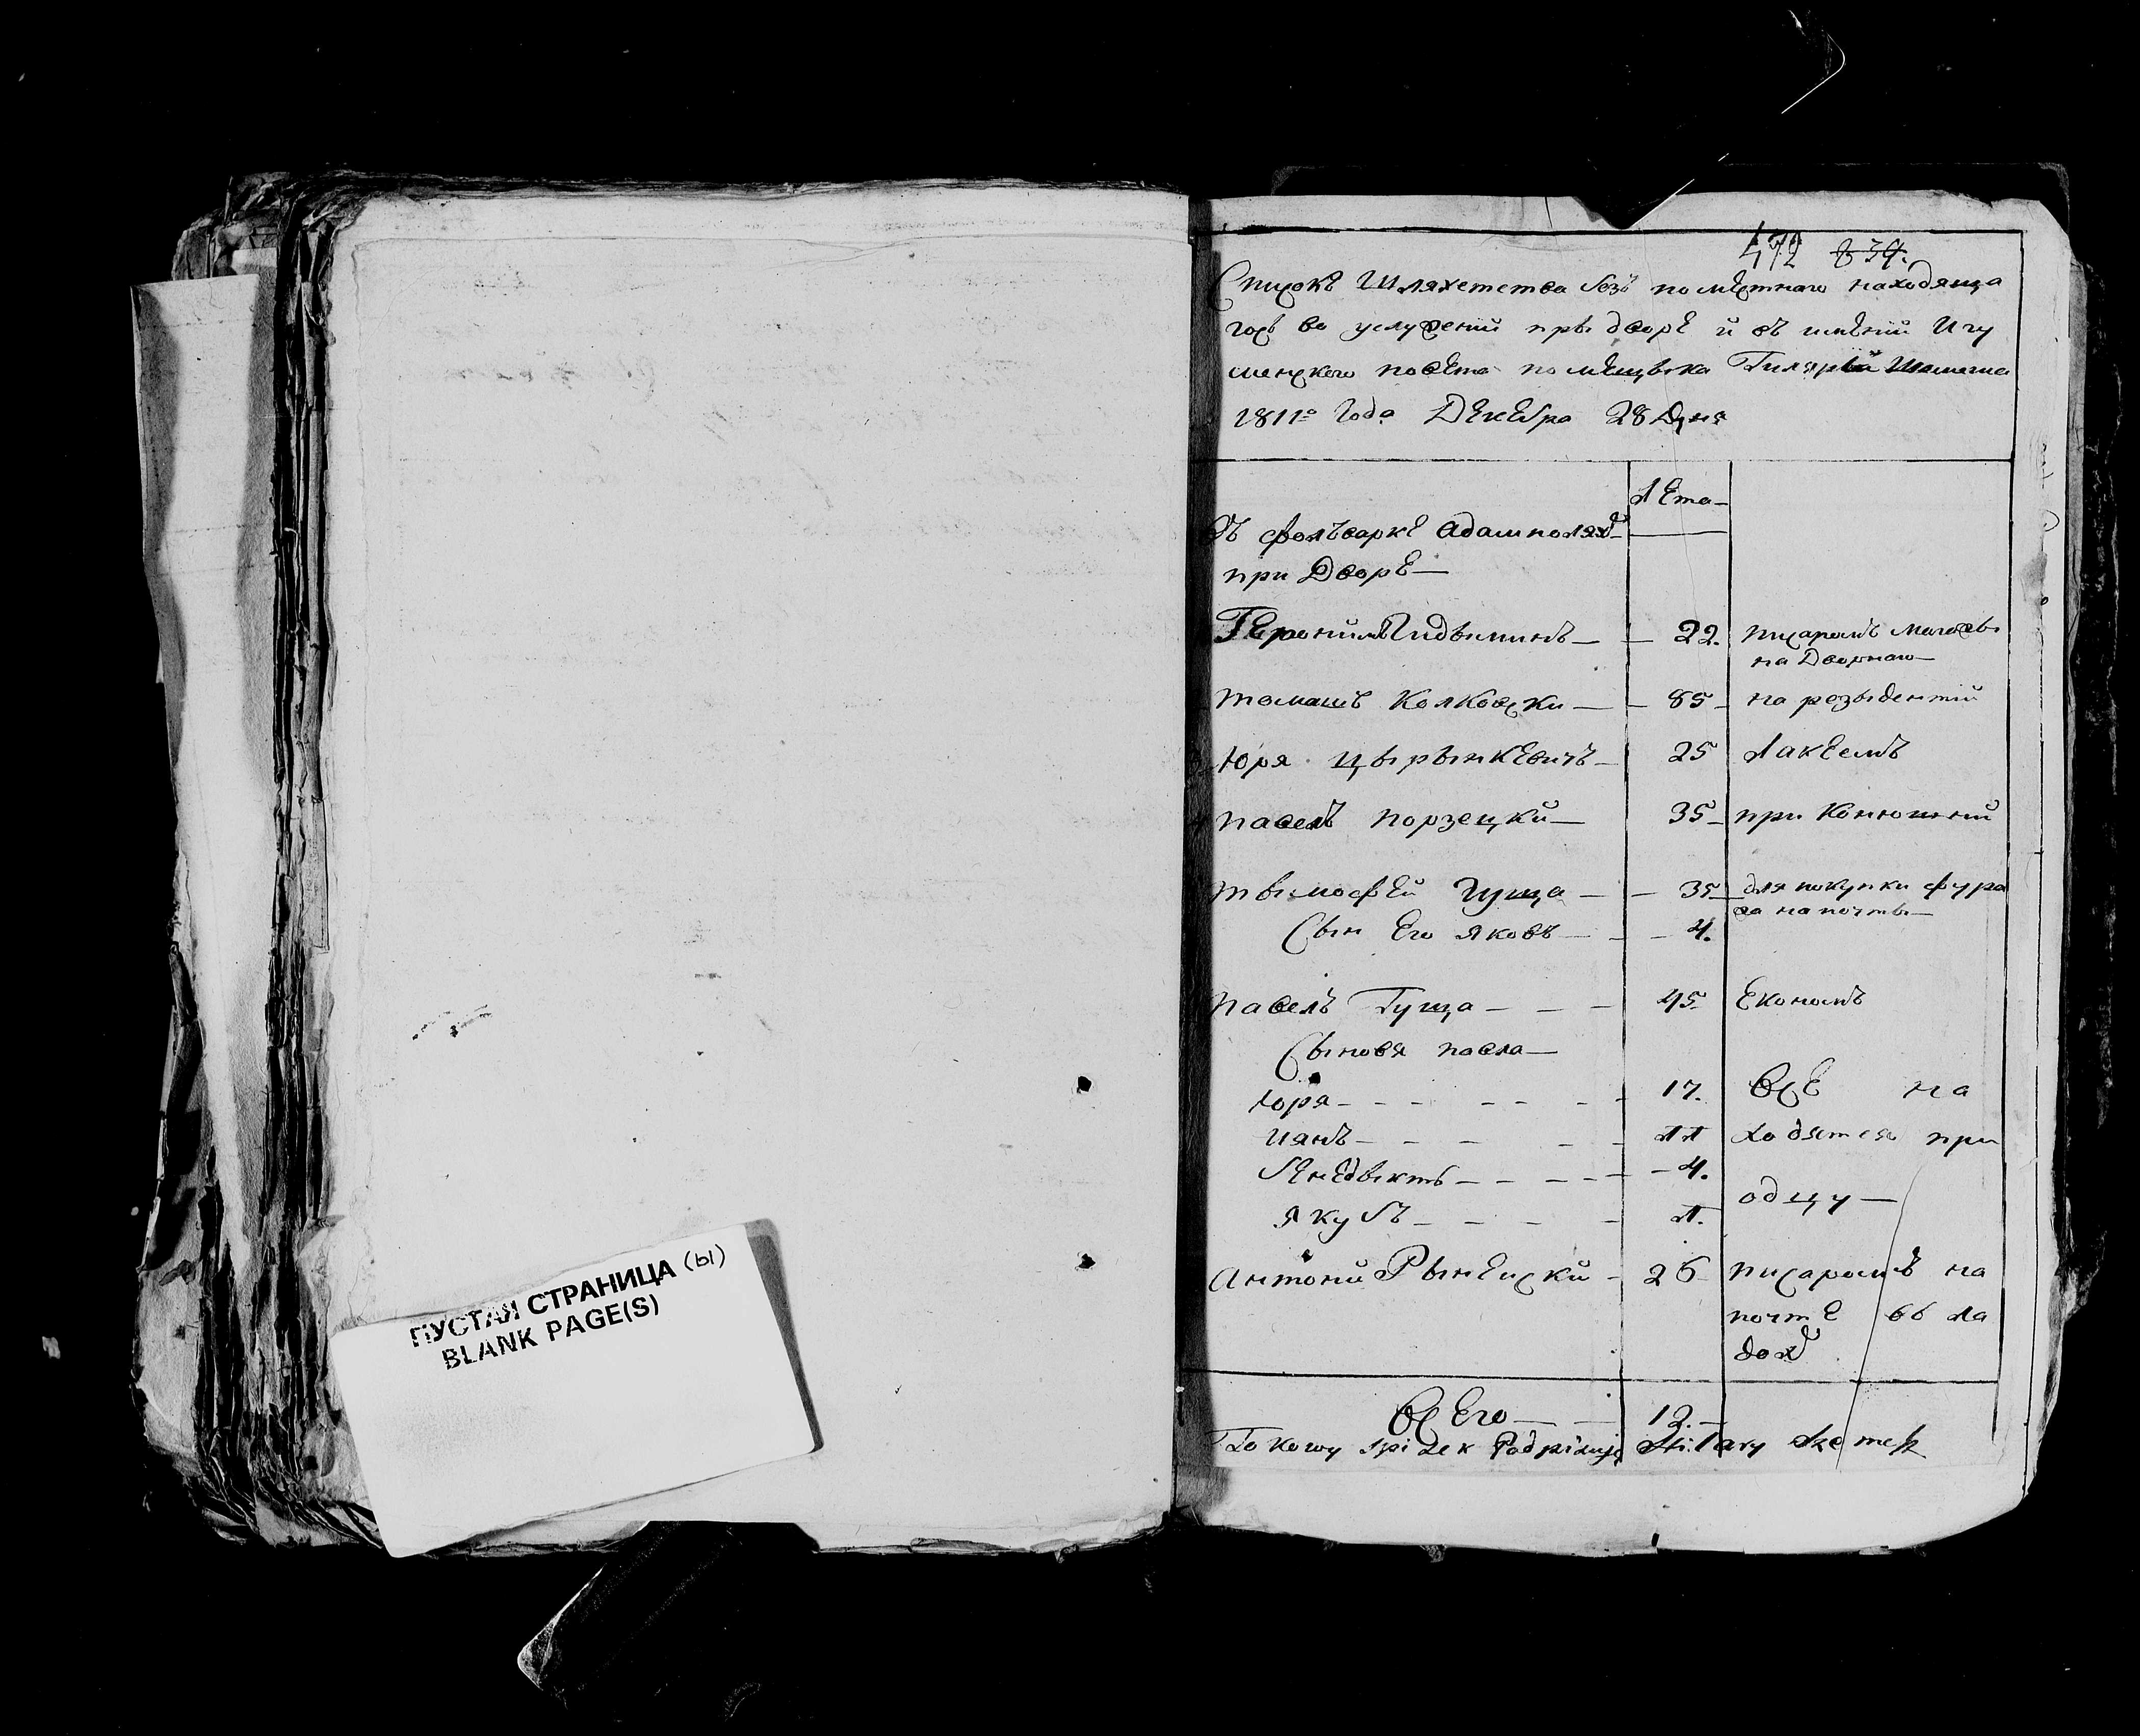 ПУСТАЯ СТРАНИЦА (Ы)
BLANK PAGE(S)
472 839.
Списокъ Шляхетства безъ поместнаго находяща
гось во услужений пры дворе й въ имений Игу
менского повета помещыка Гилярый
1811го Года Декебра 28 Дня
Лета
Въ фольварке Адамполях
при Дворе
Геронимъ Гидыминъ 22. писаромъ
на Дворнаго
Томашъ Колковски 85 на резыдентий
Юря Цырынкевичъ 25 Лакеемъ
Павелъ Порзецкий 35 при Конюшний
Тымофей Гуща 35 для покупки фура
жа на почты
Сын Его Яковъ 4.
Павелъ Гуща 45 Економъ
Сыновя Павла
Юря 17. все на
Иянъ 11 ходятся при
Бенедыктъ 4.
отцу
Якубъ 1.
Антоний Рынейски 26 писаромъ на
почте въ ла
дох
Всего 12.
Takowy spisek Podpisuję Hilary